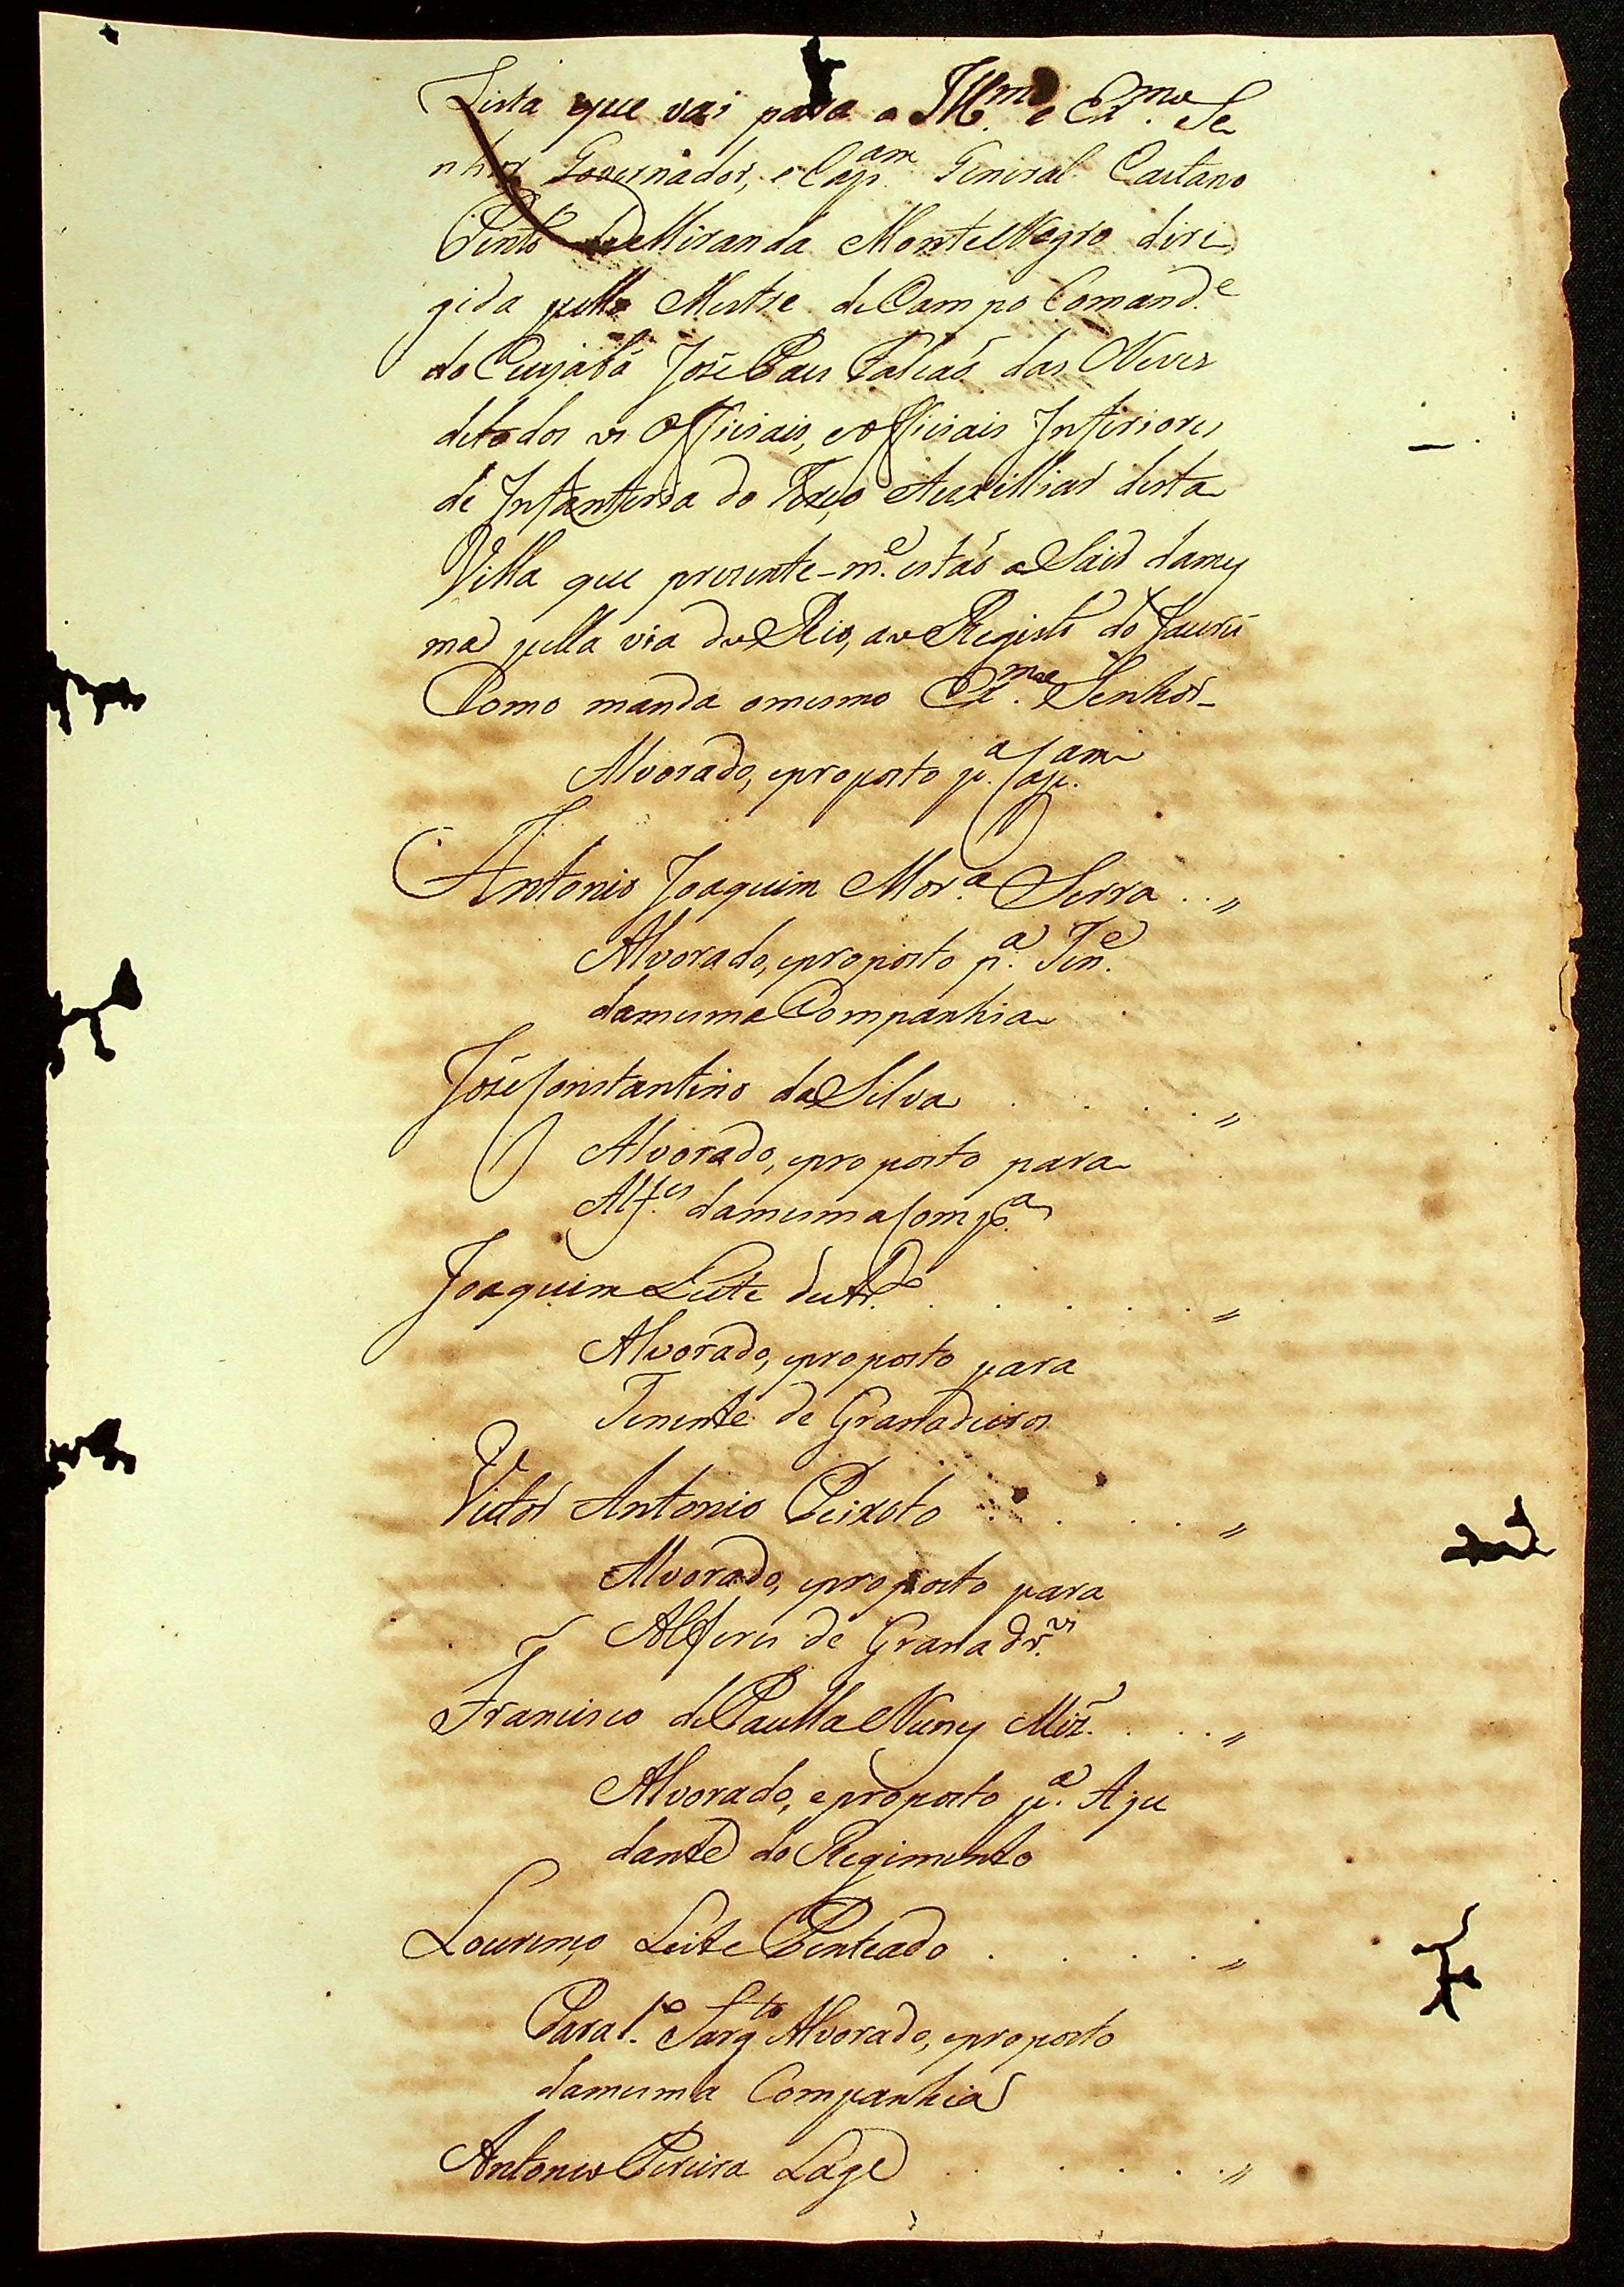 Lista que vai para o Illmo. e Exmo. Se
nhor Governador, e Capam. General Caetano
Pinto de Miranda MonteNegro diri
gida pello Mestre de Campo Comande.
do Cuyabá José Paes Falcaõ das Neves
detodos os Officiais, eofficiais Inferiores
de Infanteria do Terço Auxilliar desta
Villa que prezente-me. estaõ a Sair damy
ma pella via do Rio, ao Registo do Jaurú
Como manda omesmo Exmo. Senhor_
Alvorado, eproposto pa. Capam.
Antonio Joaquim Mora. Serra . . "
Alvorado, eproposto pa. Tene.
damesma Companhia
José Constantino da Silva . . . . "
Alvorado, eproposto para
Alfes. damesma Compa.
Joaquim Leite de Ado. . . . . "
Alvorado, eproposto para
Tenente de Granadieros
Victor Antonio Peixoto . . . . "
Alvorado, eproposto para
Alferes de Granadros.
Francisco de Paulla Nuny Miz. . . . "
Alvorado, eproposto pa. Aju
dante do Regimento
Lourenço Leite Penteado . . . . "
Para 1o. Sargto Alvorado, eproposto
damesma Companhia
Antonio Pereira Lage . . . . "